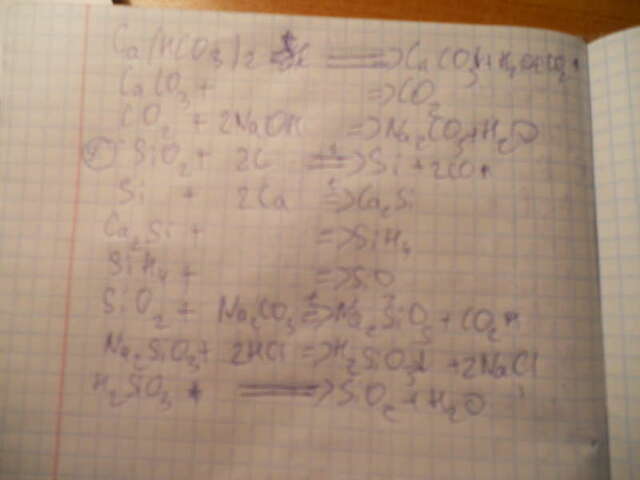 Ca(HCO3)2 => CaCO3↓ + H2O + CO2↑
CaCO3 + => CO2
CO2 + 2NaOH => Na2CO3 + H2O
SiO2 + 2C => Si + 2CO↑
Si + 2Ca => Ca2Si
Ca2Si + => SiH4
SiH4 + => SiO
SiO2 + Na2CO3 => Na2SiO3 + CO2↑
Na2SiO3 + 2HCl => H2SiO3↓ + 2NaCl
H2SiO3 => SiO2 + H2O